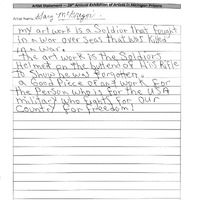 Artist Statement — 28th Annual Exhibition of Artists in Michigan Prisons
Artist Name:
my art work is a Soldior that fought
in a war over seas that was Killed
in a war.
The art work is the Soldiors
Helmet on the buttend of His Rifle
to Show he was forgotten.
a Good Piece of art work For
the Person who is for the USA
military who fights for our
Country for freedom!